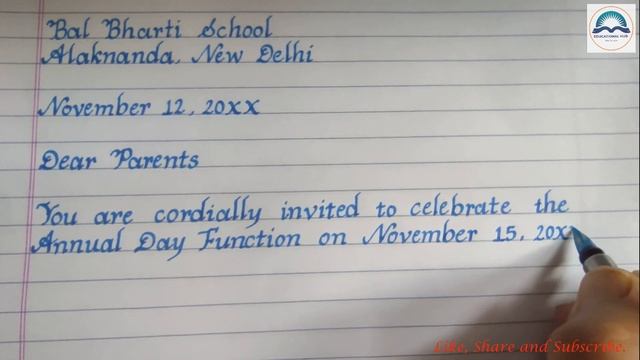 Bal Bharti School
Alaknanda, New Delhi
November 12, 20XX
Dear Parents
You are cordially invited to celebrate the
Annual Day Function on November 15, 20X
EDUCATIONAL HUB
Like, Share and Subscribe.